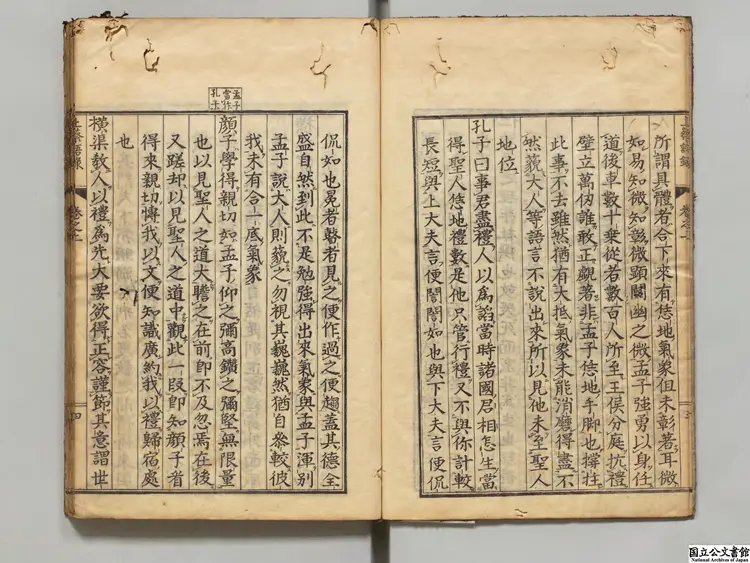 所謂具體者合下來有恁地氣象但未彰著耳微
如易知微知彰微顯闡幽之微孟子強勇以身任
道後車數十乗從者數百人所至王侯分庭抗禮
壁立萬仞誰敢正覷著非孟子恁地手脚也撑拄
此事不去雖然猶有大抵氣象未能消磨得盡不
然藐大人等語言不說出來所以見他未至聖人
地位
孔子曰事君盡禮人以爲謟當時諸國君相怎生當
得聖人恁地禮數是他只管行禮又不與你計較
長短與上大夫言便誾誾如也與下大夫言便侃
侃如也冕者瞽者見之便作過之便趨盖其德全
盛自然到此不是勉強得出來氣象與孟子渾别
孟子說大人則藐之勿視其巍巍然猶自參較彼
我未有合一底氣象
顔子學得親切如孟子仰之彌高鑽之彌堅無限量
也以見聖人之道大瞻之在前即不及忽焉在後
又蹉却以見聖人之道中觀此一段即知顔子看
得來親切博我以文便知識廣約我以禮歸宿處
也
横渠教人以禮爲先大要欲得正容謹節其意謂世
孟子
當作
孔子
上蔡語錄
卷之上
四
国立公文書館
National Archives of Japan